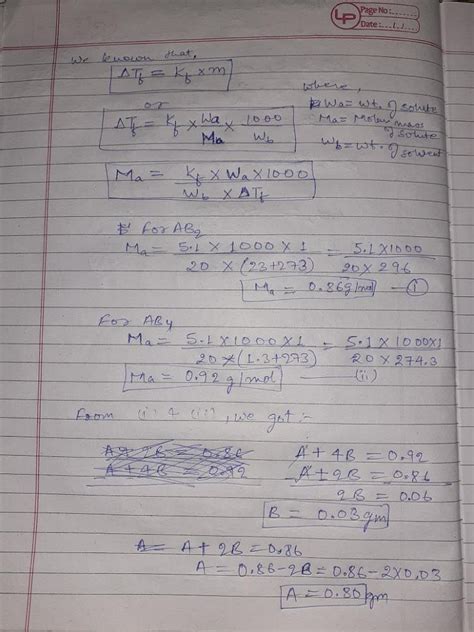 LP
Page No.:
Date: / /
We known that,
ΔTf = Kf × m
or
ΔTf = Kf × Wa/Ma × 1000/Wb
where,
Wa = wt. of solute
Ma = Molar mass of solute
Wb = wt. of solvent
Ma = Kf × Wa × 1000 / Wb × ΔTf
For AB2
Ma = 5.1 × 1000 × 1 / 20 × (23+273) = 5.1 × 1000 / 20 × 296
Ma = 0.86 g/mol — (i)
For AB4
Ma = 5.1 × 1000 × 1 / 20 × (1.3+273) = 5.1 × 1000 × 1 / 20 × 274.3
Ma = 0.92 g/mol — (ii)
From (i) & (ii), we got :-
A + 2B = 0.86
A + 4B = 0.92
A + 4B = 0.92
A + 2B = 0.86
2B = 0.06
B = 0.03 gm
A = A + 2B = 0.86
A = 0.86 - 2B = 0.86 - 2 × 0.03
A = 0.80 gm